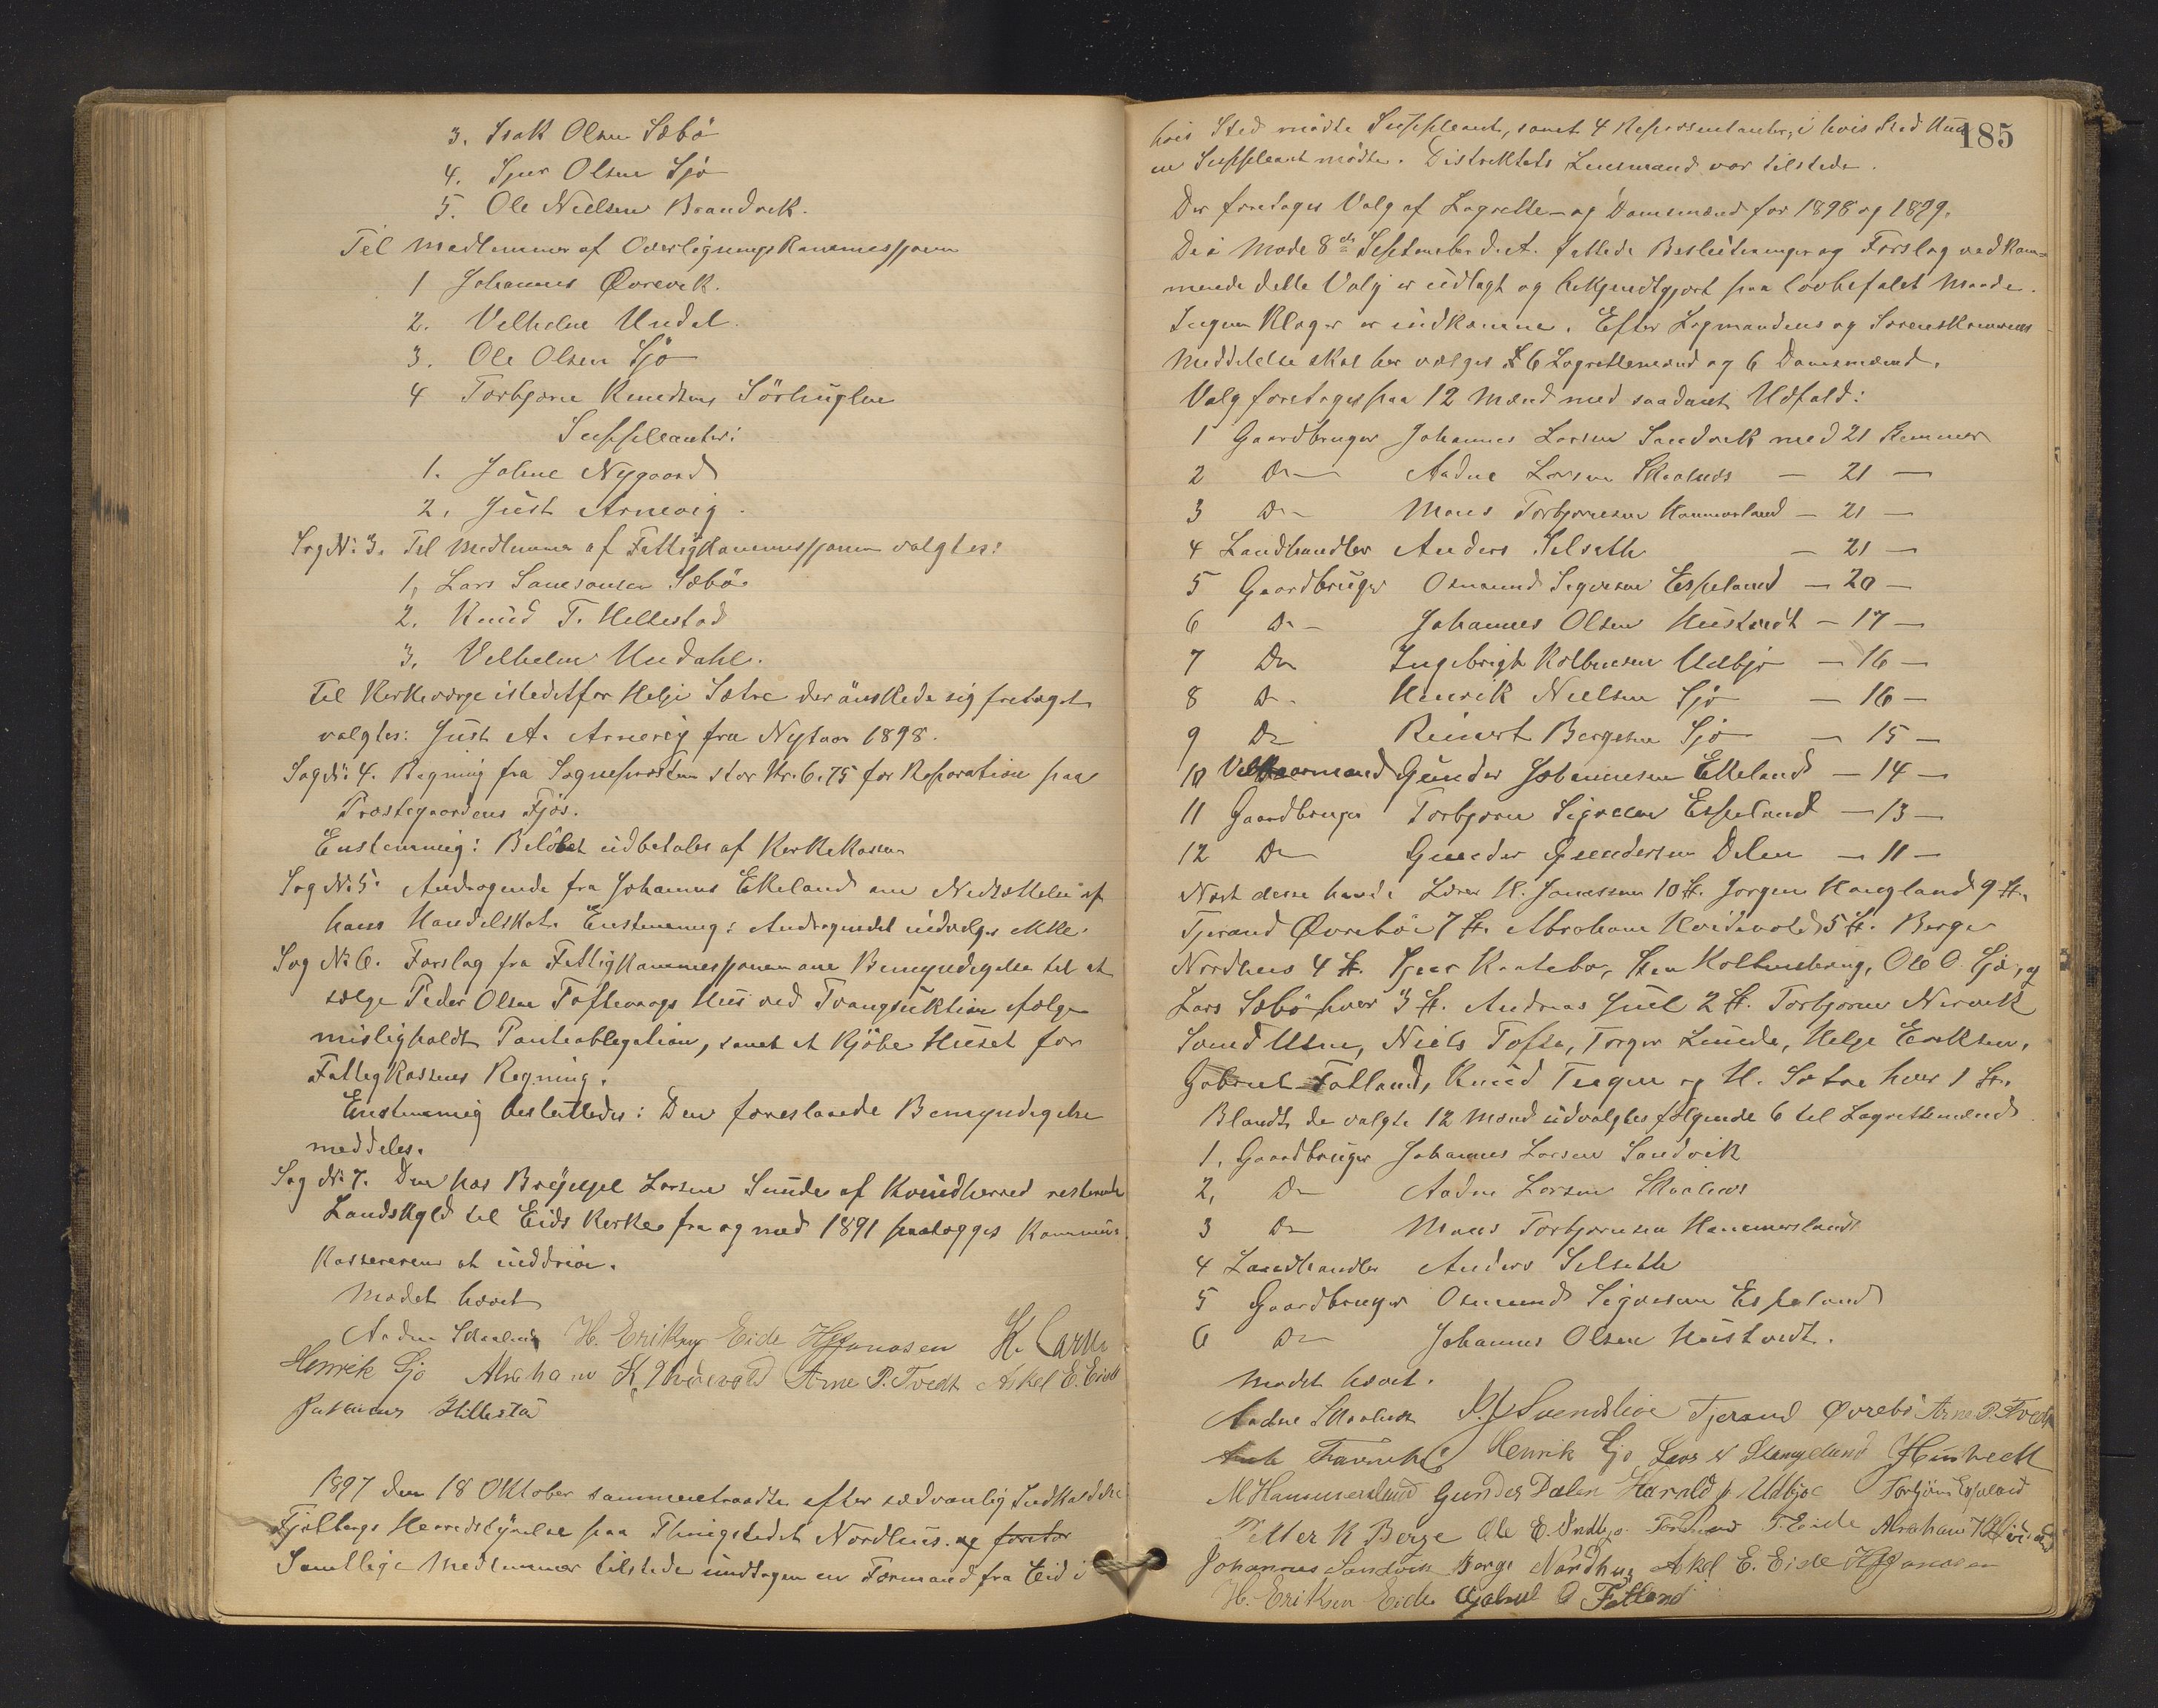 3. Isak Olsen Sæbö
4. Sjur Olsen Sjö
5. Ole Nielsen Brandvik.
Til Medlemmer af Overligningskommissionen
1 Johannes Øvrevik.
2. Vilhelm Undal.
3. Ole Olsen Sjö
4 Torbjørn Knudsen, Sörhuglen
Suppleanter:
1. Johne Nygaard
2. Just Arnevig.
Sag No. 3. Til Medlemmer af Fattigkommissionen valgtes:
1, Lars Samsonsen Sæbö.
2. Knud T. Hellestad
3. Vilhelm Undahl.
Til Kirkeværge istedetfor Helje Sætre der önskede sig fritaget
valgtes: Just A. Arnevig fra Nytaar 1898.
Sag No. 4. Regning fra Sogneprosten stor Kr. 6.75 for Reparation paa
Præstegaardens Fjös.
Enstemmig: Belöbet udbetales af Kirkekassen
Sag No. 5. Andragende fra Johannes Ekeland om Nedsættelse af
hans Handelskat. Enstemmig: Andragendet indvilges ikke.
Sag No. 6. Forslag fra Fattigkommissionen om Bemyndigelse til at
sælge Peder Olsen Toftevaags Hus ved Tvangsuktion ifølge
misligholdt Panteobligation, samt at kjöbe Huset for
Fattigkassens Regning.
Enstemmig besluttedes: Den foreslaaede Bemyndigelse
meddeles.
Sag No. 7. Den hos Brynjel Larsen Sunde af Kvindherred resterende
Landskyld til Eids Kirke fra og med 1891 paalægges Kommune-
kassereren at inddrive.
Mødet hævet
Aadne Skaaluen H. Eriksen Eide H. Jonassen K.
Henrik Sjo Abraham K. Hvidevold Arne P. Tvedt Askel E. Eide
Rasmus Hillestad
1897 den 18 Oktober sammentraadte efter sædvanlig Indkaldelse
Fjelbergs Herredstyrelse paa Thingstedet Nordhus. og foretor
Samtlige Medlemmer tilstede undtagen en Formand fra Eid i
185
hvis Sted mödte Suppleant, samt 4 Repræsentanter, i hvis Sted kun
en Suppleant mødte. Distriktets Lensmand var tilstede.
Der foretages Valg af Lagrette- og Domsmænd for 1898 og 1899.
De i Møde 8de September d. A. fattede Beslutninger og Forslag vedkom-
mende dette Valg er udlagt og bekjendtgjort paa lovbefalet Maade.
Ingen Klager er indkomne. Efter Lagmandens og Sorenskriverens
Meddelelse skal her vælges 6 Lagrettemænd og 6 Domsmænd.
Valg foretages paa 12 Mænd med saadant Udfald:
1 Gaardbruger Johannes Larsen Sandvik med 21 Stemmer
2 Do Aadne Larsen Skaaluen — 21 —
3 Do Mons Torbjørnsen Hammersland — 21 —
4 Landhandler Anders Selseth — 21 —
5 Gaardbruger Osmund Sigvesen Espeland — 20 —
6 Do Johannes Olsen Hustvedt — 17 —
7 Do Ingebrigt Kolbensen Udbjø — 16 —
8 D. Henrik Nielsen Sjø — 16 —
9 Do Reinert Bergesen Sjö — 15 —
10 Gunder Johannesen Ekeland — 14 —
11 Gaardbruger Torbjørn Sigvesen Espeland — 13 —
12 Do Gunder Gundersen Dalen — 11 —
Næst disse havde Lærer H. Jonassen 10 St. Jørgen Haugland 9 St.
Tjerand Øvrebö 7 St. Abraham Hvidevold 5 St. Berge
Nordhus 4 St. Sjur Ole O. Sjö, og
Lars Sæbö hver 3 St. Andreas Juel 2 St. Torbjørn
Niels Tofte, Torger Lunde, Helge Eriksen,
Gabriel Fatland, Knud og H. Sætre hver 1 St.
Blandt de valgte 12 Mænd udvalgtes følgende 6 til Lagrettemænd
1. Gaardbruger Johannes Larsen Sandvik
2, Do Aadne Larsen Skaaluen
3 Do Mons Torbjørnsen Hammersland
4 Landhandler Anders Selseth
5 Gaardbruger Osmund Sigvesen Espeland
6 Do Johannes Olsen Hustvedt.
Mødet hævet.
Aadne Skaaluen Svendslioe Tjerand Øvrebö Arne P. Tvedt
Henrik Sjo Lars Hustvedt
M Hammersland Gunder Dalen Harald Udbjoe Torbjörn Espeland
Petter K Berge Ole E. Undbjo. T. Eide Abraham K Hvidevold
Johannes Sandvik Berge Nordhus Askel E. Eide H. Jonassen
H. Eriksen Eide Gabriel O Fatland